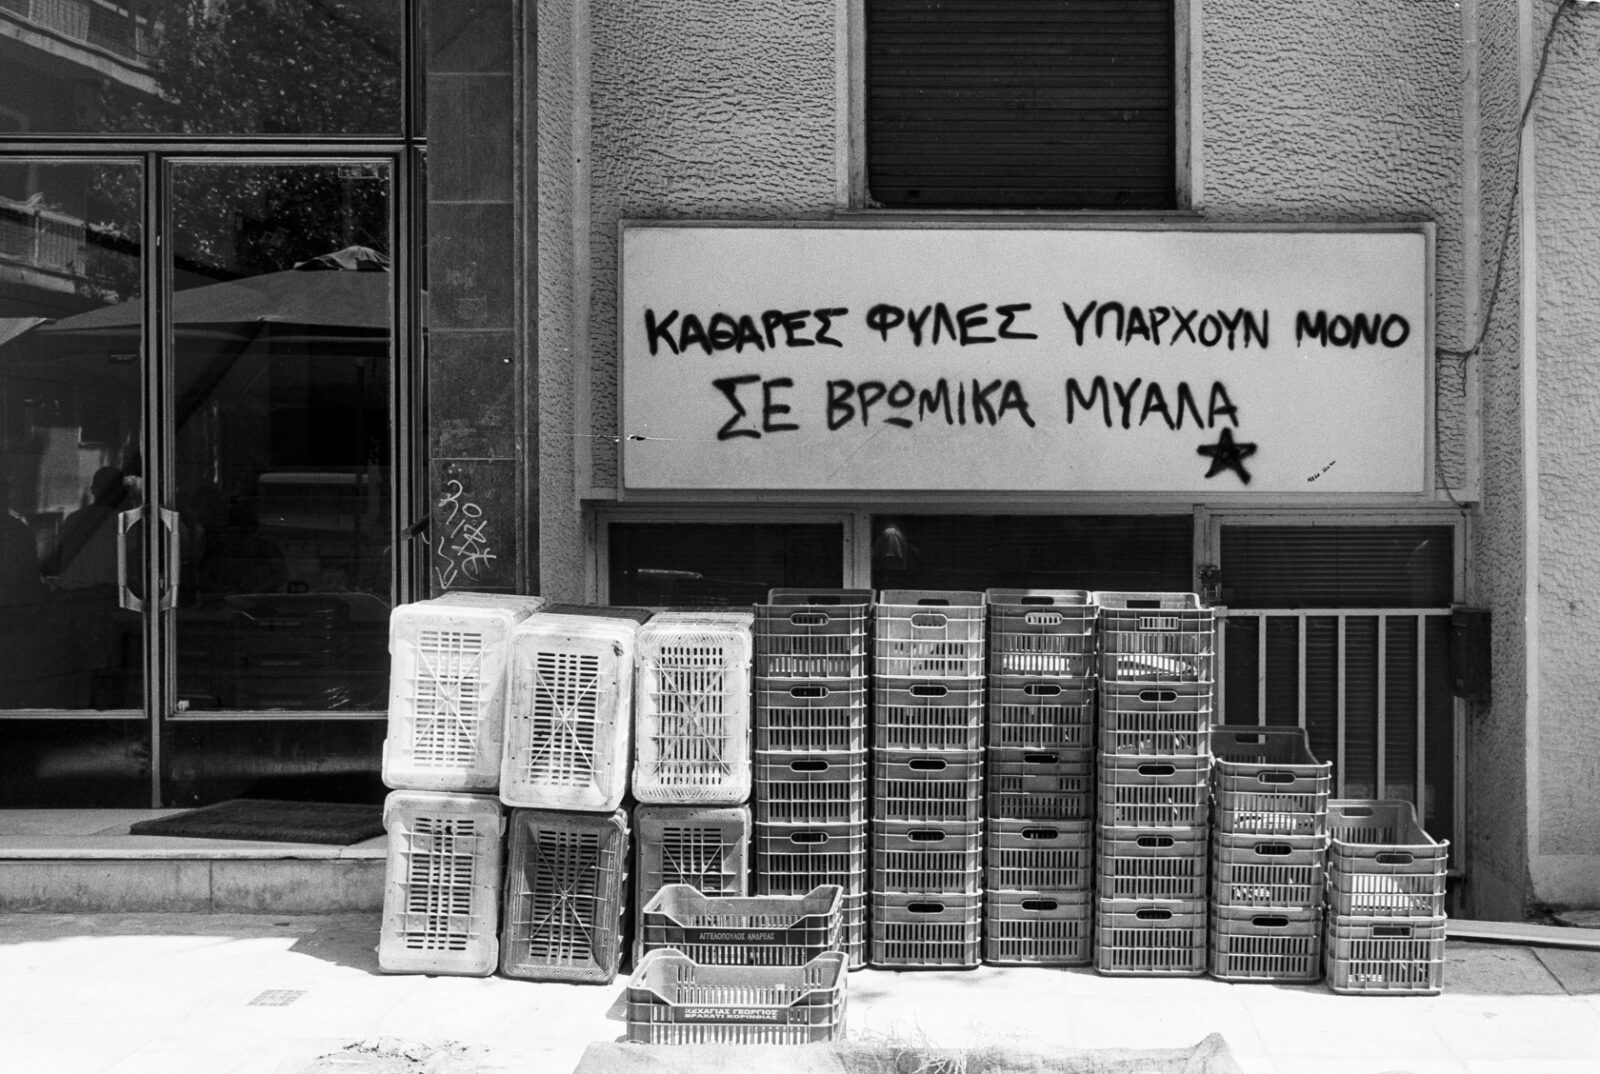 ΚΑΘΑΡΕΣ ΦΥΛΕΣ ΥΠΑΡΧΟΥΝ ΜΟΝΟ
ΣΕ ΒΡΩΜΙΚΑ ΜΥΑΛΑ
ΑΓΓΕΛΟΠΟΥΛΟΣ ΑΝΔΡΕΑΣ
ΚΕΧΑΓΙΑΣ ΓΕΩΡΓΙΟΣ
ΒΡΑΧΑΤΙ ΚΟΡΙΝΘΙΑΣ